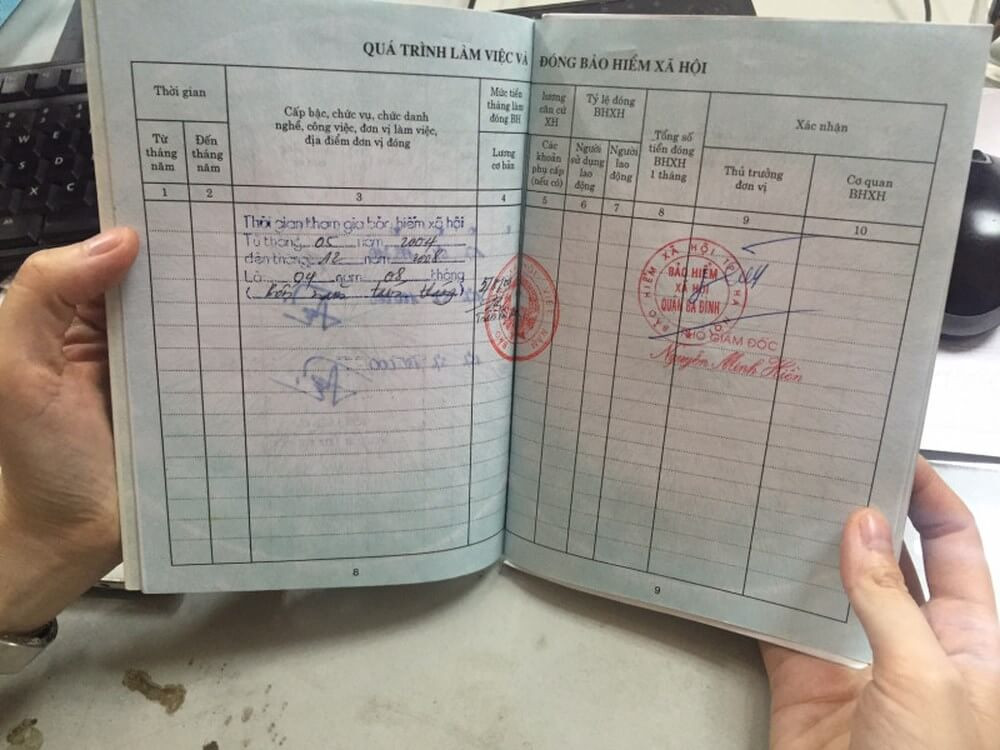 QUÁ TRÌNH LÀM VIỆC VÀ ĐÓNG BẢO HIỂM XÃ HỘI
Thời gian
Từ tháng năm
Đến tháng năm
Cấp bậc, chức vụ, chức danh
nghề, công việc, đơn vị làm việc,
địa điểm đơn vị đóng
Mức tiền
tháng làm
đóng BH
Lương
cơ bản
lương
căn cứ
XH
Các
khoản
phụ cấp
(nếu có)
Tỷ lệ đóng
BHXH
Người
sử dụng
lao
động
Người
lao
động
Tổng số
tiền đóng
BHXH
1 tháng
Xác nhận
Thủ trưởng
đơn vị
Cơ quan
BHXH
1 2 3 4 5 6 7 8 9 10
Thời gian tham gia bảo hiểm xã hội
Từ tháng 05 năm 2004
đến tháng 12 năm 2008
Là 04 năm 08 tháng
(bốn năm tám tháng)
BẢO HIỂM XÃ HỘI T.P HÀ NỘI
BẢO HIỂM
XÃ HỘI
QUẬN BA ĐÌNH
PHÓ GIÁM ĐỐC
Nguyễn Minh Hiền
8
9